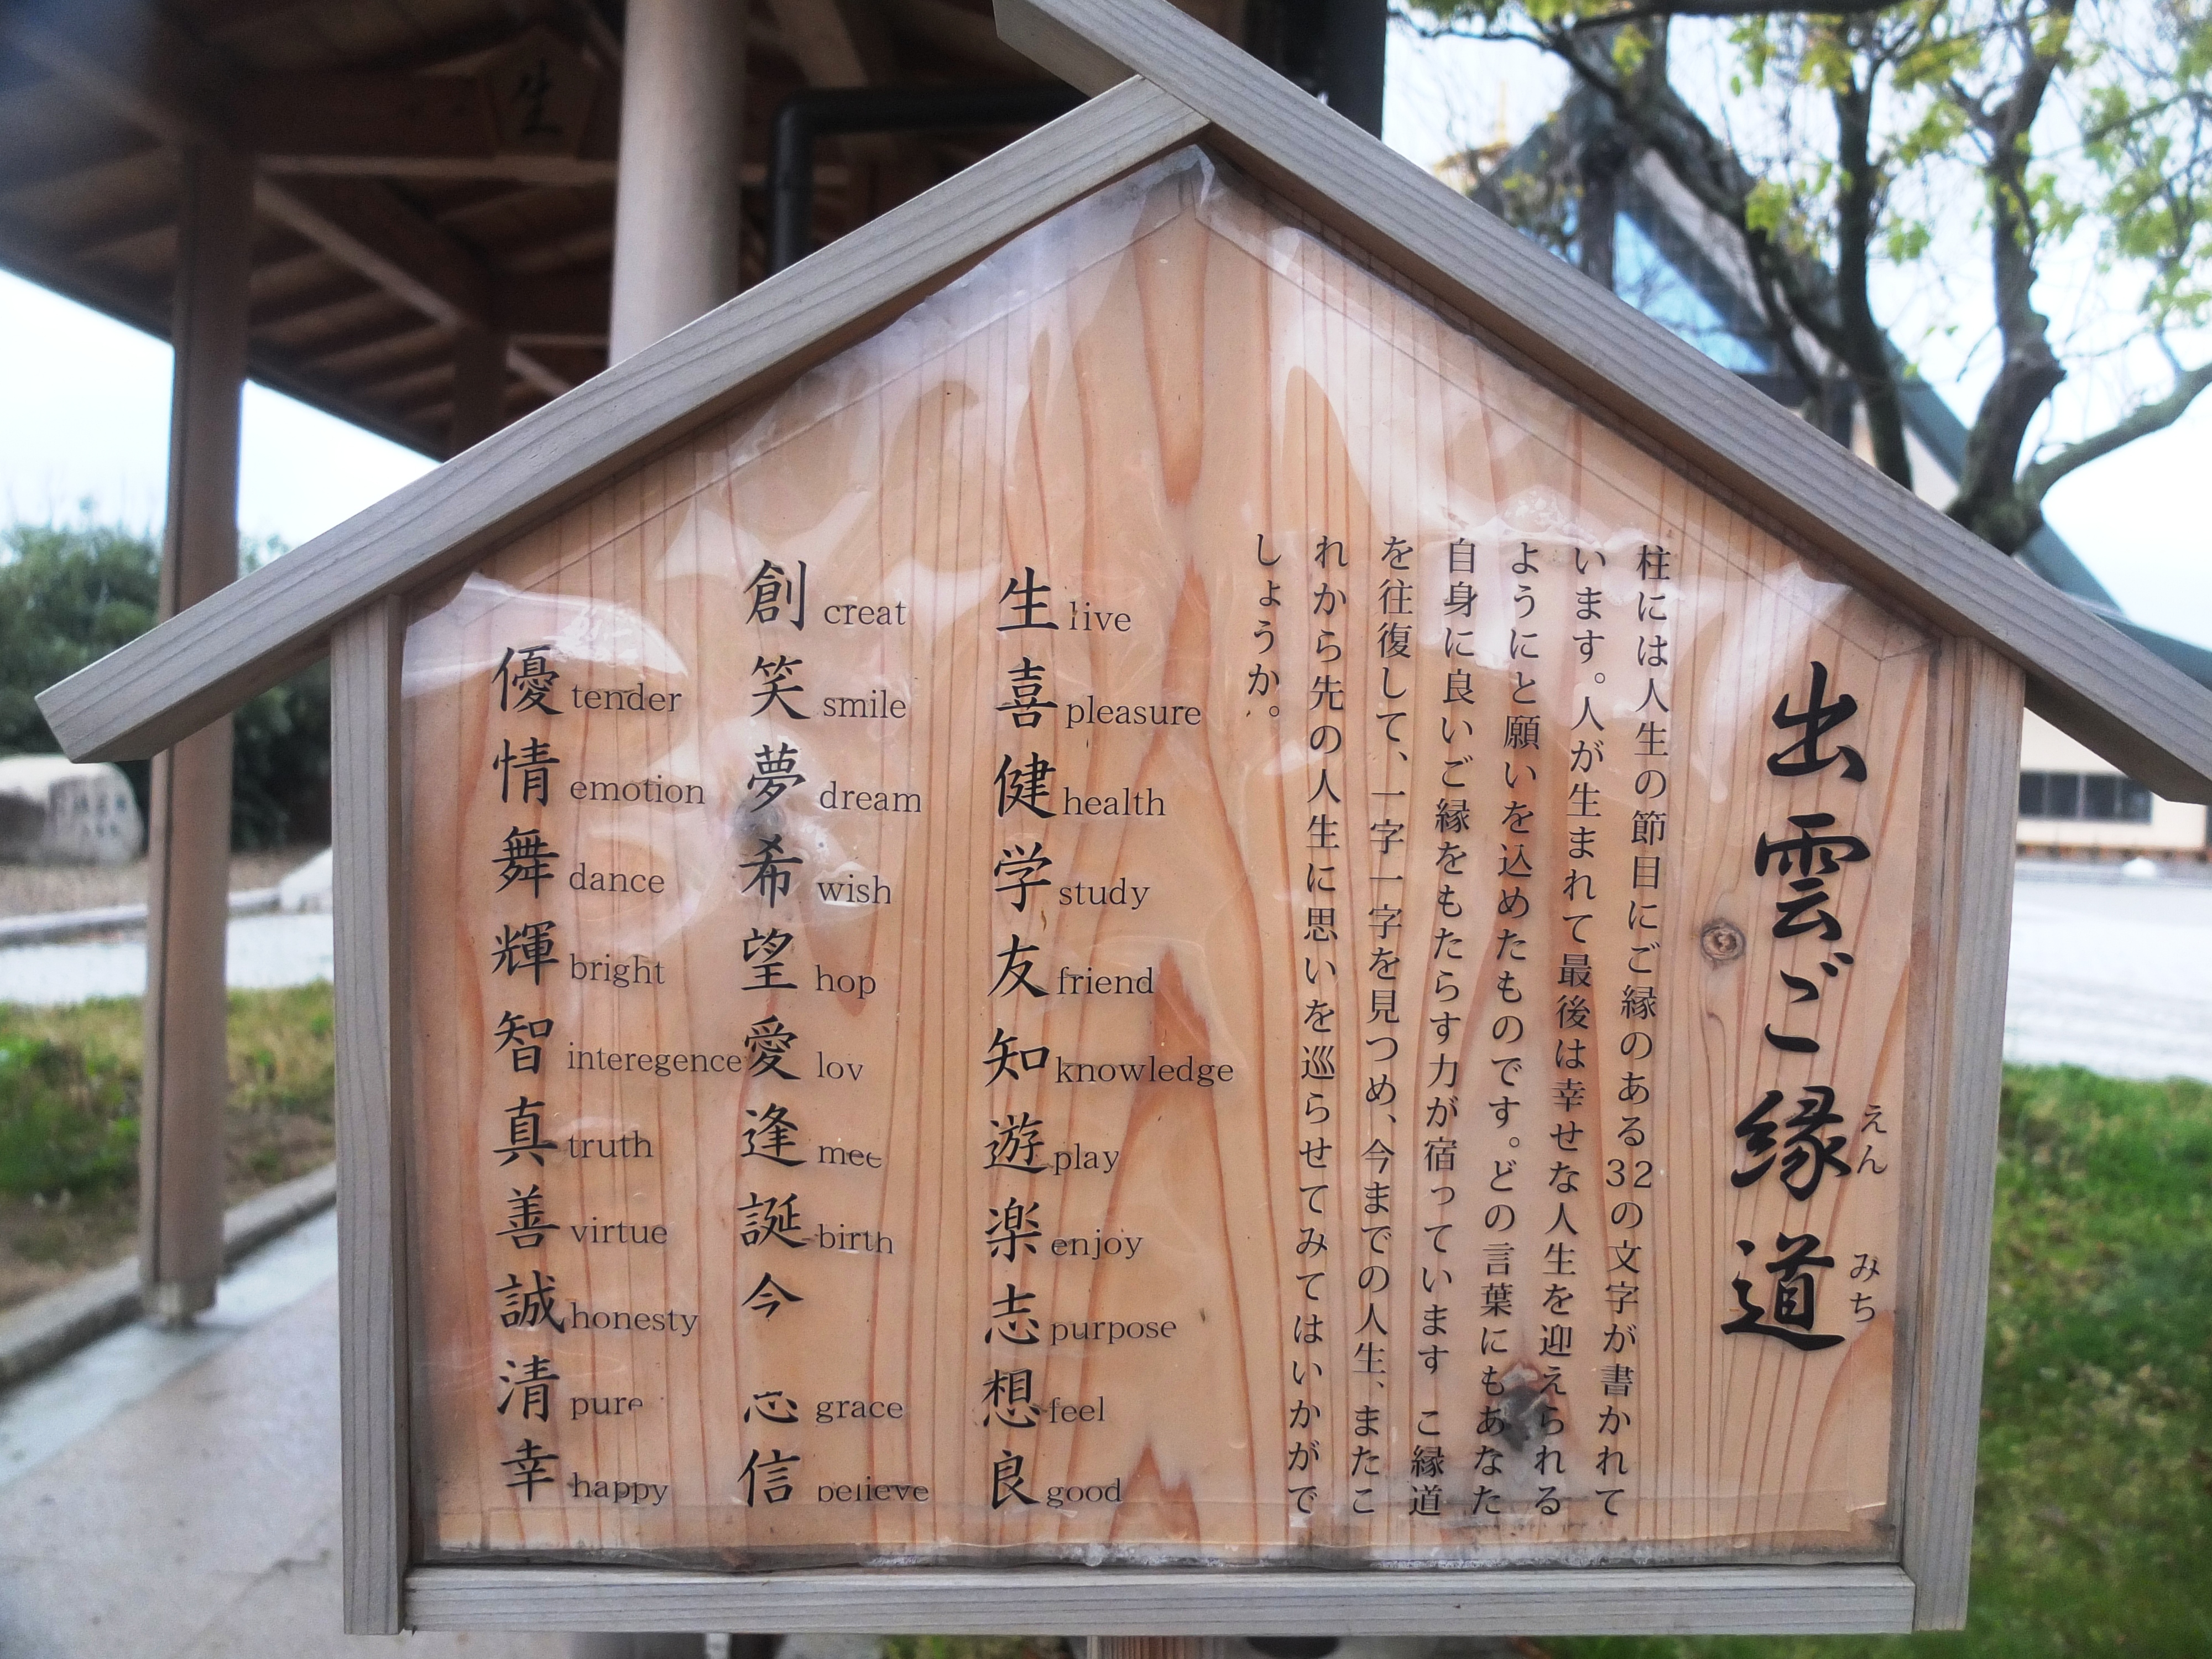 出雲ご縁道
えん
みち
柱には人生の節目にご縁のある32の文字が書かれて
います。人が生まれて最後は幸せな人生を迎えられる
ようにと願いを込めたものです。どの言葉にもあなた
自身に良いご縁をもたらす力が宿っています こ縁道
を往復して、一字一字を見つめ、今までの人生、またこ
れから先の人生に思いを巡らせてみてはいかがで
しょうか。
生 live
喜 pleasure
健 health
学 study
友 friend
知 knowledge
遊 play
楽 enjoy
志 purpose
想 feel
良 good
創 creat
笑 smile
夢 dream
希 wish
望 hop
愛 lov
逢 mee
誕 birth
今
grace
信 believe
優 tender
情 emotion
舞 dance
輝 bright
智 interegence
真 truth
善 virtue
誠 honesty
清 pure
幸 happy
生